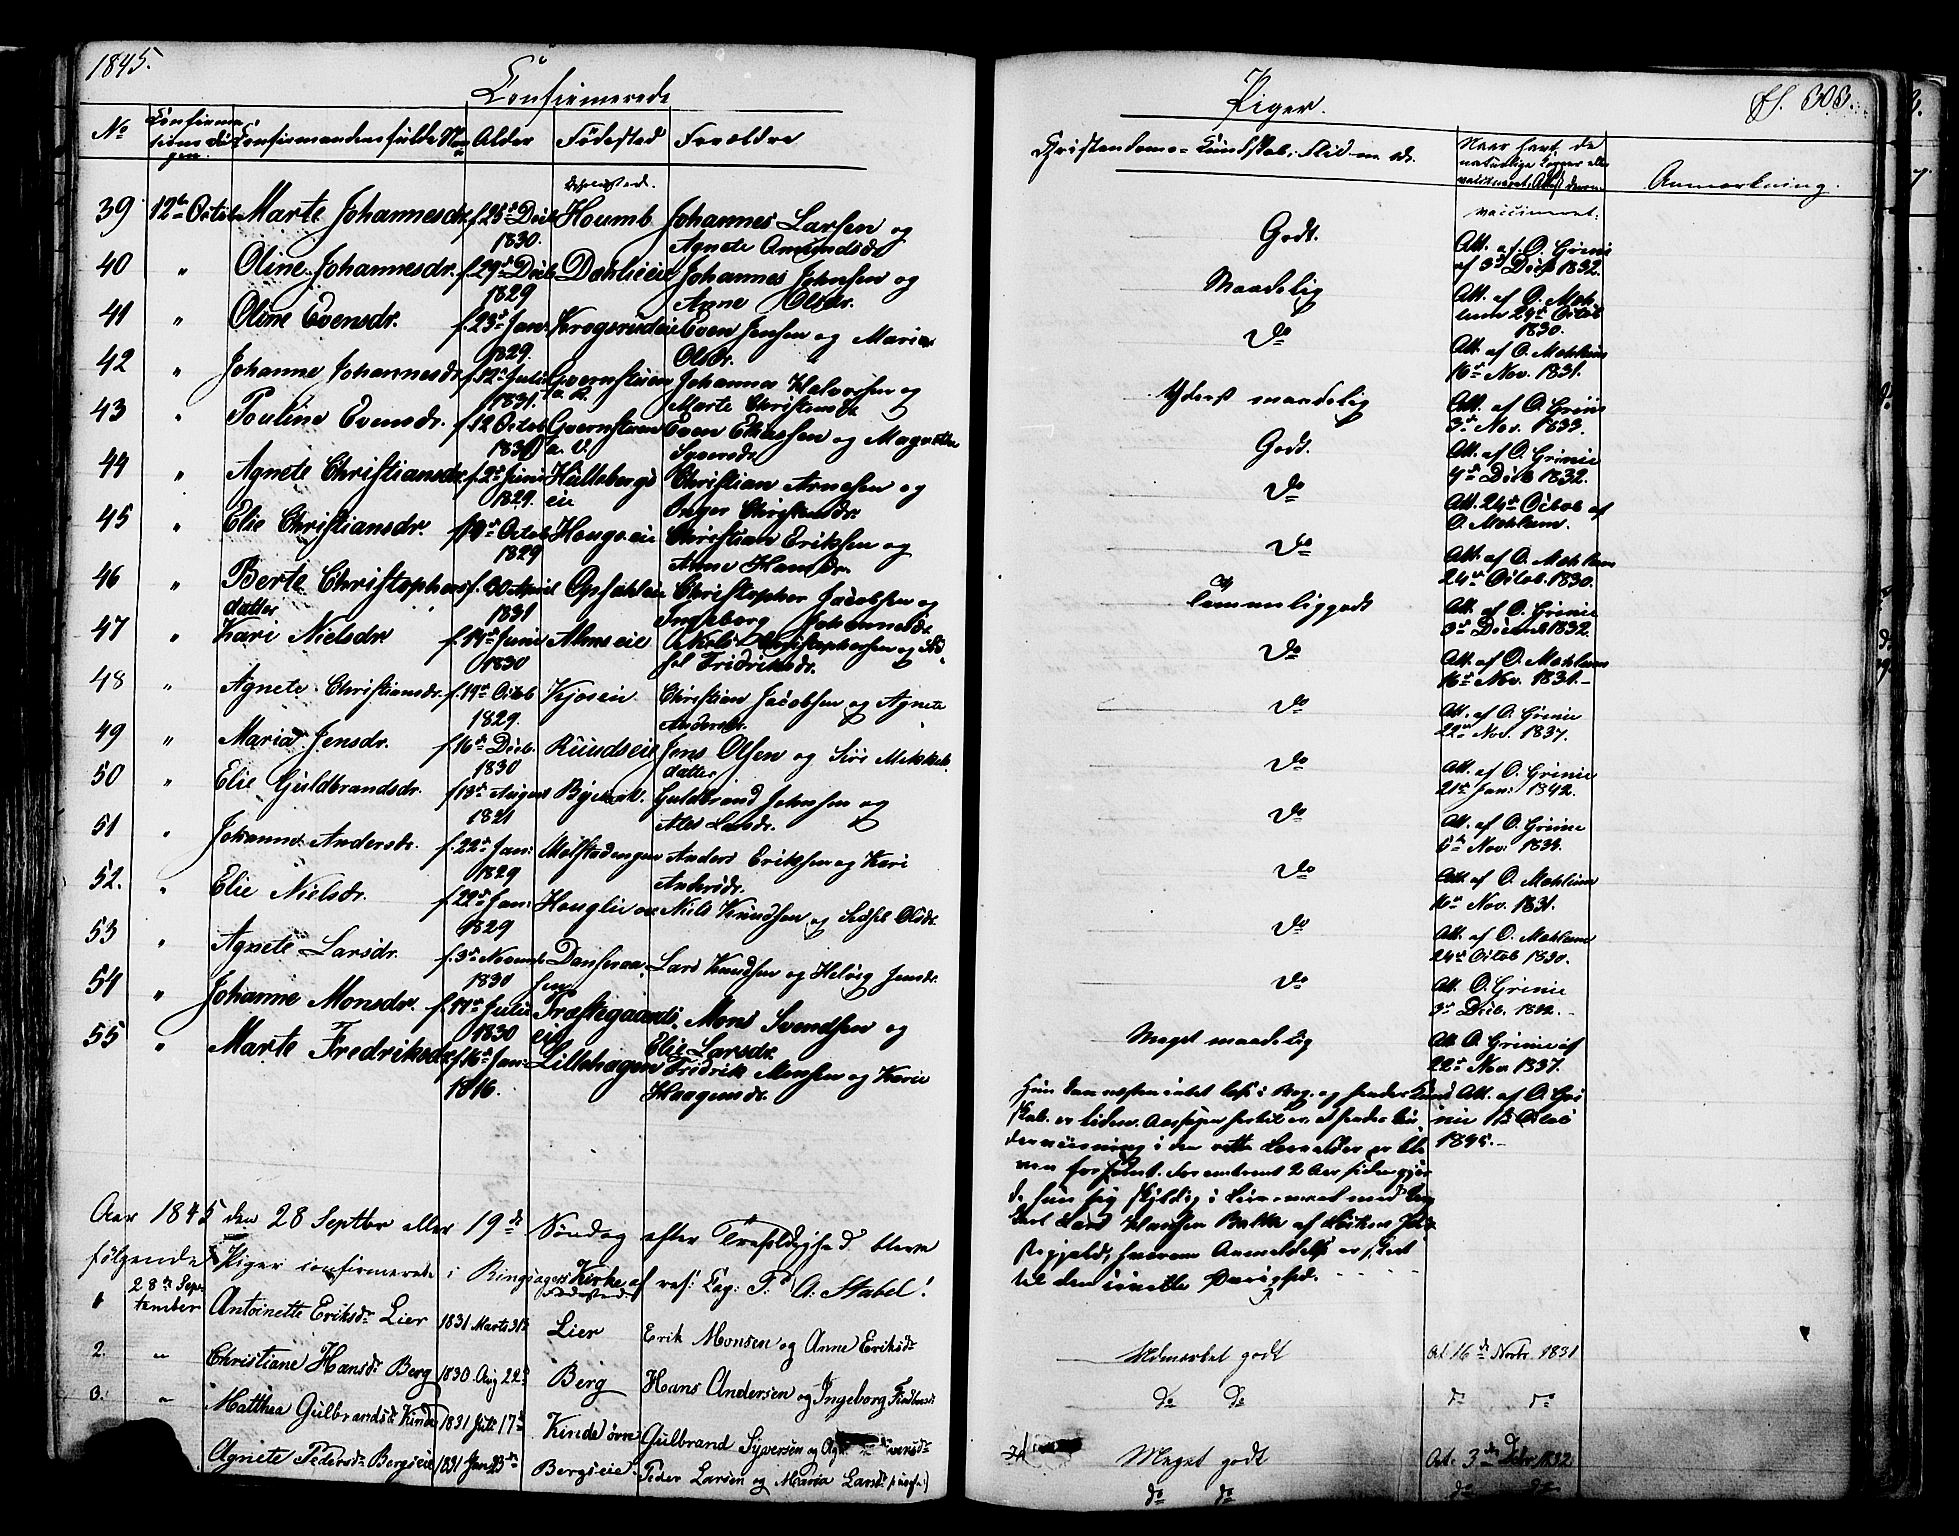 1845.
Confirmerede
Piger.
ff. 303.
No
Confirmationsdagen
Confirmandens fulde Navn
Alder
Fødested
Forældre
Christendoms-Kundskab, Flid m. v.
Naar havt de naturlige Kopper eller vaccineret, Attest derom
Anmærkning.
Opholdssted.
vaccineret.
39 12te Octob Marte Johannesdr. f. 25de Decb 1830. Houmb Johannes Larsen og Agnete Amundsdr. Godt. Att. af O. Grinie af 3d Decb 1832.
40 " Oline Johannesdr. f. 29de Decb 1829 Dahlieeie Johannes Johnsen og Anne Olsdr. Maadelig Att. af O. Mæhlum 24de Octob 1830.
41 " Oline Evensdr. f. 23de Jan: 1829. Krogsrudeie Even Jensen og Maria Olsdr. do Att. af O. Mæhlum 16de Nov. 1831.
42 " Johanne Johannesdr. f. 12te Julii 1831. Johannes Halvorsen og Marte Christensdr. Yderst maadelig Att. af O. Grinie 3de Nov. 1833.
43 " Pouline Evensdr. f. 12 Octob Even og Magnille Syversdr. Godt. Att. af O. Grinie 4de Decb 1832.
44 " Agnete Christiansdr. f. 2den Junii 1829. Hullebergseie Christian Arnesen og Inger Christensdr. do Att. 24de Octob af O. Mæhlum.
45 " Elie Christiansdr. f. 19de Octob 1829 Hougseie Christian Eriksen og Anne Hansdr. do Att. af O. Mæhlum 24de Octob. 1830.
46 " Berte Christophersdatter f. 30 April 1831 Opsahleie Christopher Jacobsen og Ingeborg Johannesdr. Temmeliggodt Att. af O. Grinie 3de Decemb 1832.
47 " Kari Nielsdr. f. 14de Junii 1830 Almseie Niels Christophersen og Sidsel Fridriksdr. do Att. af O. Mæhlum 16de Nov. 1831.-
48 " Agnete Christiansdr. f. 19de Octob 1829. Kjoseie Christian Jacobsen og Agnete Andersdr. do Att. af O. Grinie 22de Nov. 1837.
49 " Maria Jensdr. f. 16de Decb. 1830 Ruudseie Jens Olsen og Siri Mekkelsdatter do Att. af O. Grinie 21de Jan: 1842.
50 " Elie Guldbrandsdr. f. 13de August 1831 Guldbrand Johnsen og Larsdr. do Att. af O. Grinie Nov: 1833.
51 " Johanne Andersdr. f. 22de Jan: 1829 Molstadengen Anders Eriksen og Kari Andersdr. do Att. af O. Mæhlum 16de Nov. 1831.
52. " Elie Nielsdr. f. 22de Jan: 1829 Niels Knudsen og Sidsel Olsdr. do Att. af O. Mæhlum 24de Octob 1830.
53 " Agnete Larsdr. f. 3de Novemb 1830 Lars Knudsen og Helvig Jensdr. do Att. O. Grinie 3de Decb. 1832.-
54 " Johanne Monsdr. f. 14de Julii 1830 Præstegaardseie Mons Svendsen og Elie Larsdr. Meget maadelig Att. O. Grinie af 22de Nov 1837.
55 " Marte Fredriksdr. f. 16de Jan: 1816. Lillehagen Fridrik Monsen og Karie Haagensdr.
Hun kan næsten intet læse i Bog, og hendes Kund- Att. af O. Gri-
skab er liden. Aarsagen hertil er, at hendes Un- nie Octob
dervisning i den rette Læsealder er ble- 1845.-
ven forsømt. For omtrent 2 Aar siden gjor-
de hun sig skyldig i Leiermaal med Ung-
karl Lars Hansen Bakke af
hvorom Anmeldelse er skeet
til den civile Øvrighed.
Aar 1845 den 28 Septbr eller 19de Søndag efter Trefoldighed bleve
følgende Piger confirmerede i Ringsagers Kirke af res: Cap: P. A. Stabel!
Fødested.
1 28de September Antoinette Eriksdr Lier 1831 Marts 31te Lier Erik Monsen og Anne Eriksdr Udmærket godt At. 16de Novbr. 1831
2. " Christiane Hansdr Berg 1830 Aug 22de Berg Hans Andersen og Ingeborg do do do do
3. " Matthea Gulbrandsdr Kinde 1831 Juli 17de Kinde øvre Gulbrand Syversen og Meget godt At. 3de Debr. 1832
Agnete Pedersdr Bergseie 1831 Jan 23de Bergseie Peder Larsen og Maria Larsdr do do do do